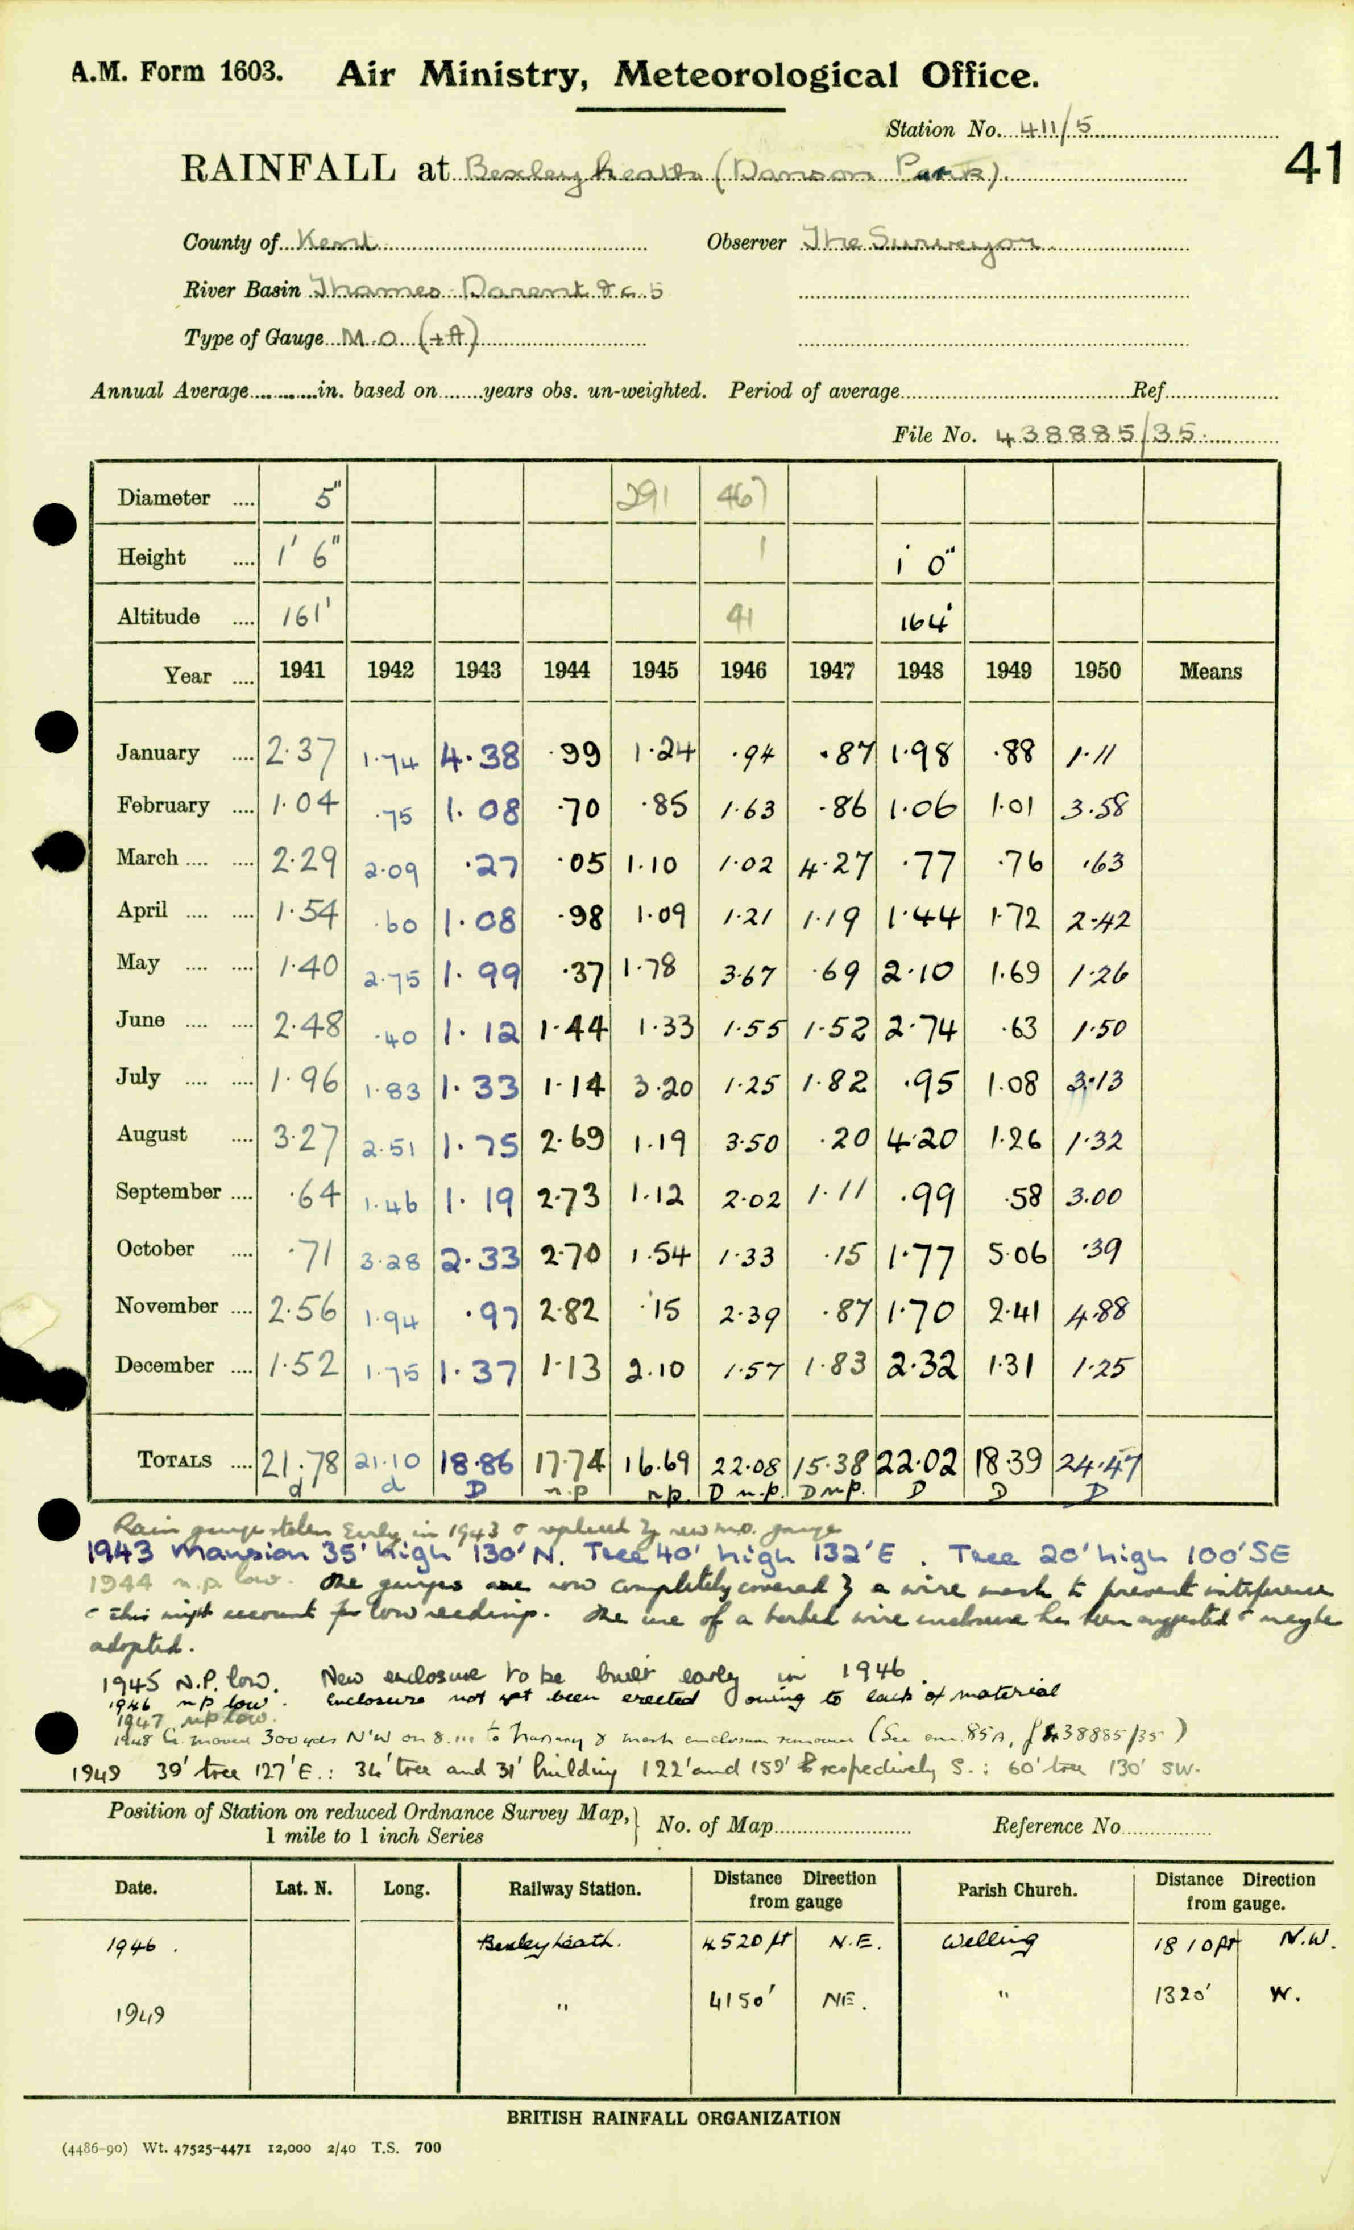 A.M. Form 1603. Air Ministry, Meteorological Office.
Station No. 411/5
41
RAINFALL at Bexleyheath (Danson Park)
County of Kent Observer The Surveyor
River Basin Thames-Darent &c. 5
Type of Gauge M.O (+A)
Annual Average............in. based on........years obs. un-weighted. Period of average........Ref........
File No. 438885/35
Diameter .... 5" 291 467
Height .... 1' 6" 1 1' 0"
Altitude .... 161' 41 164'
Year .... 1941 1942 1943 1944 1945 1946 1947 1948 1949 1950 Means
January .... 2.37 1.74 4.38 .99 1.24 .94 .87 1.98 .88 1.11
February .... 1.04 .75 1.08 .70 .85 1.63 .86 1.06 1.01 3.58
March .... .... 2.29 2.09 .27 .05 1.10 1.02 4.27 .77 .76 .63
April .... .... 1.54 .60 1.08 .98 1.09 1.21 1.19 1.44 1.72 2.42
May .... .... 1.40 2.75 1.99 .37 1.78 3.67 .69 2.10 1.69 1.26
June .... .... 2.48 .40 1.12 1.44 1.33 1.55 1.52 2.74 .63 1.50
July .... .... 1.96 1.83 1.33 1.14 3.20 1.25 1.82 .95 1.08 3.13
August .... 3.27 2.51 1.75 2.69 1.19 3.50 .20 4.20 1.26 1.32
September .... .64 1.46 1.19 2.73 1.12 2.02 1.11 .99 .58 3.00
October .... .71 3.28 2.33 2.70 1.54 1.33 .15 1.77 5.06 .39
November .... 2.56 1.94 .97 2.82 .15 2.39 .87 1.70 2.41 4.88
December .... 1.52 1.75 1.37 1.13 2.10 1.57 1.83 2.32 1.31 1.25
TOTALS .... 21.78 21.10 18.86 17.74 16.69 22.08 15.38 22.02 18.39 24.47
d d D n.p n.p. D n.p. D n.p. D D D
Rain gauge stolen Early in 1943 & replaced by new m.o. gauge
1943 Mansion 35' high 130' N. Tree 40' high 132' E . Tree 20' high 100' SE
1944 n.p. low. The gauges are now completely covered by a wire mesh to prevent interference
& this might account for low readings. The use of a barbed wire enclosure has been suggested & maybe
adopted.
1945 N.P. low. New enclosure to be built early in 1946.
1946 n p low. Enclosure not yet been erected owing to lack of material
1947 n p low.
1948 G. moved 300 yds N'W on 8.111 to Nursery & mesh enclosure (See 85A, f 438885/35)
1949 39' tree 127' E.: 34' tree and 31' building 122' and 159' respectively S.: 60' tree 130' SW.
Position of Station on reduced Ordnance Survey Map, No. of Map........ Reference No........
1 mile to 1 inch Series
Date. Lat. N. Long. Railway Station. Distance from gauge Direction Parish Church. Distance from gauge. Direction
1946 . Bexleyheath. 4520 ft N.E. Welling 1810 ft N.W.
1949 " 4150' NE. " 1320' W.
BRITISH RAINFALL ORGANIZATION
(4486-90) Wt. 47525-4471 12,000 2/40 T.S. 700